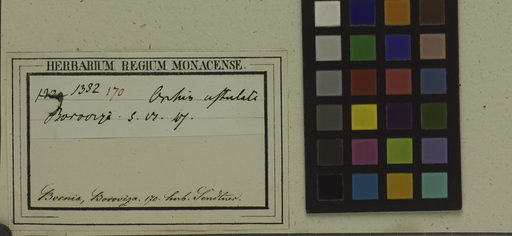 HERBARIUM REGIUM MONACENSE.
1332 170 Orchis ustulata
Borovizà. S. VI.
Bosnia, Boroviza. 170. herb. Sendtner.